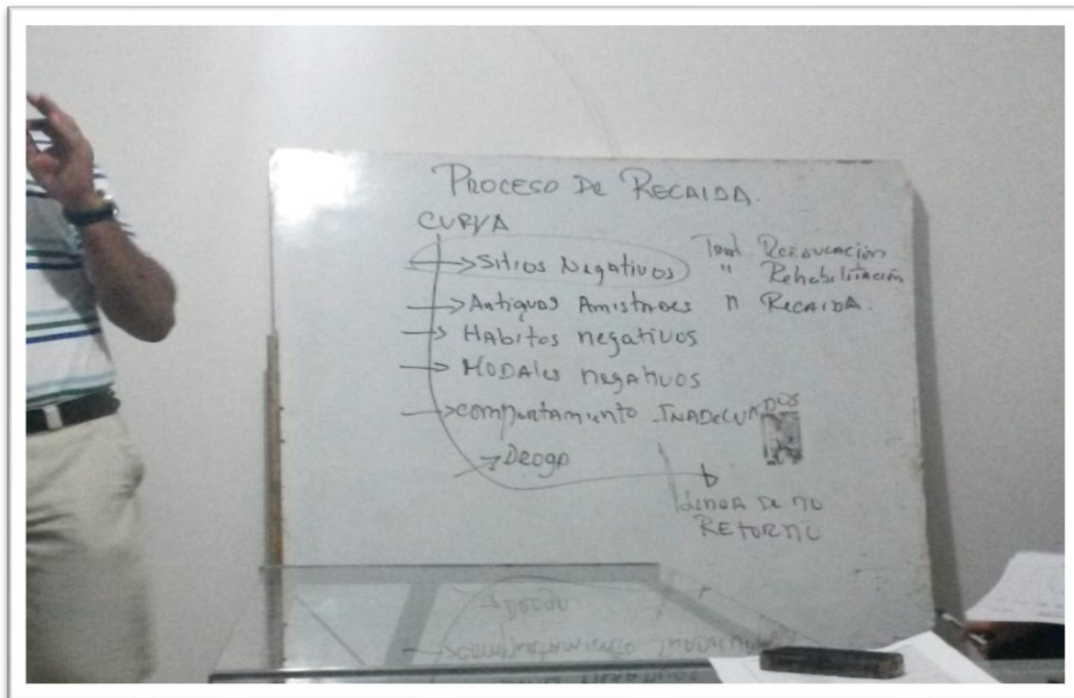 PROCESO De RECAIDA.
CURVA
Sitios Negativos
Antiguas Amistades
HAbitos negativos
MODAles negativos
comportamiento INADecuADOS
Droga
Tout Reeducación
" Rehabilitación
" RecAIDA.
Linea De no
RETORNO